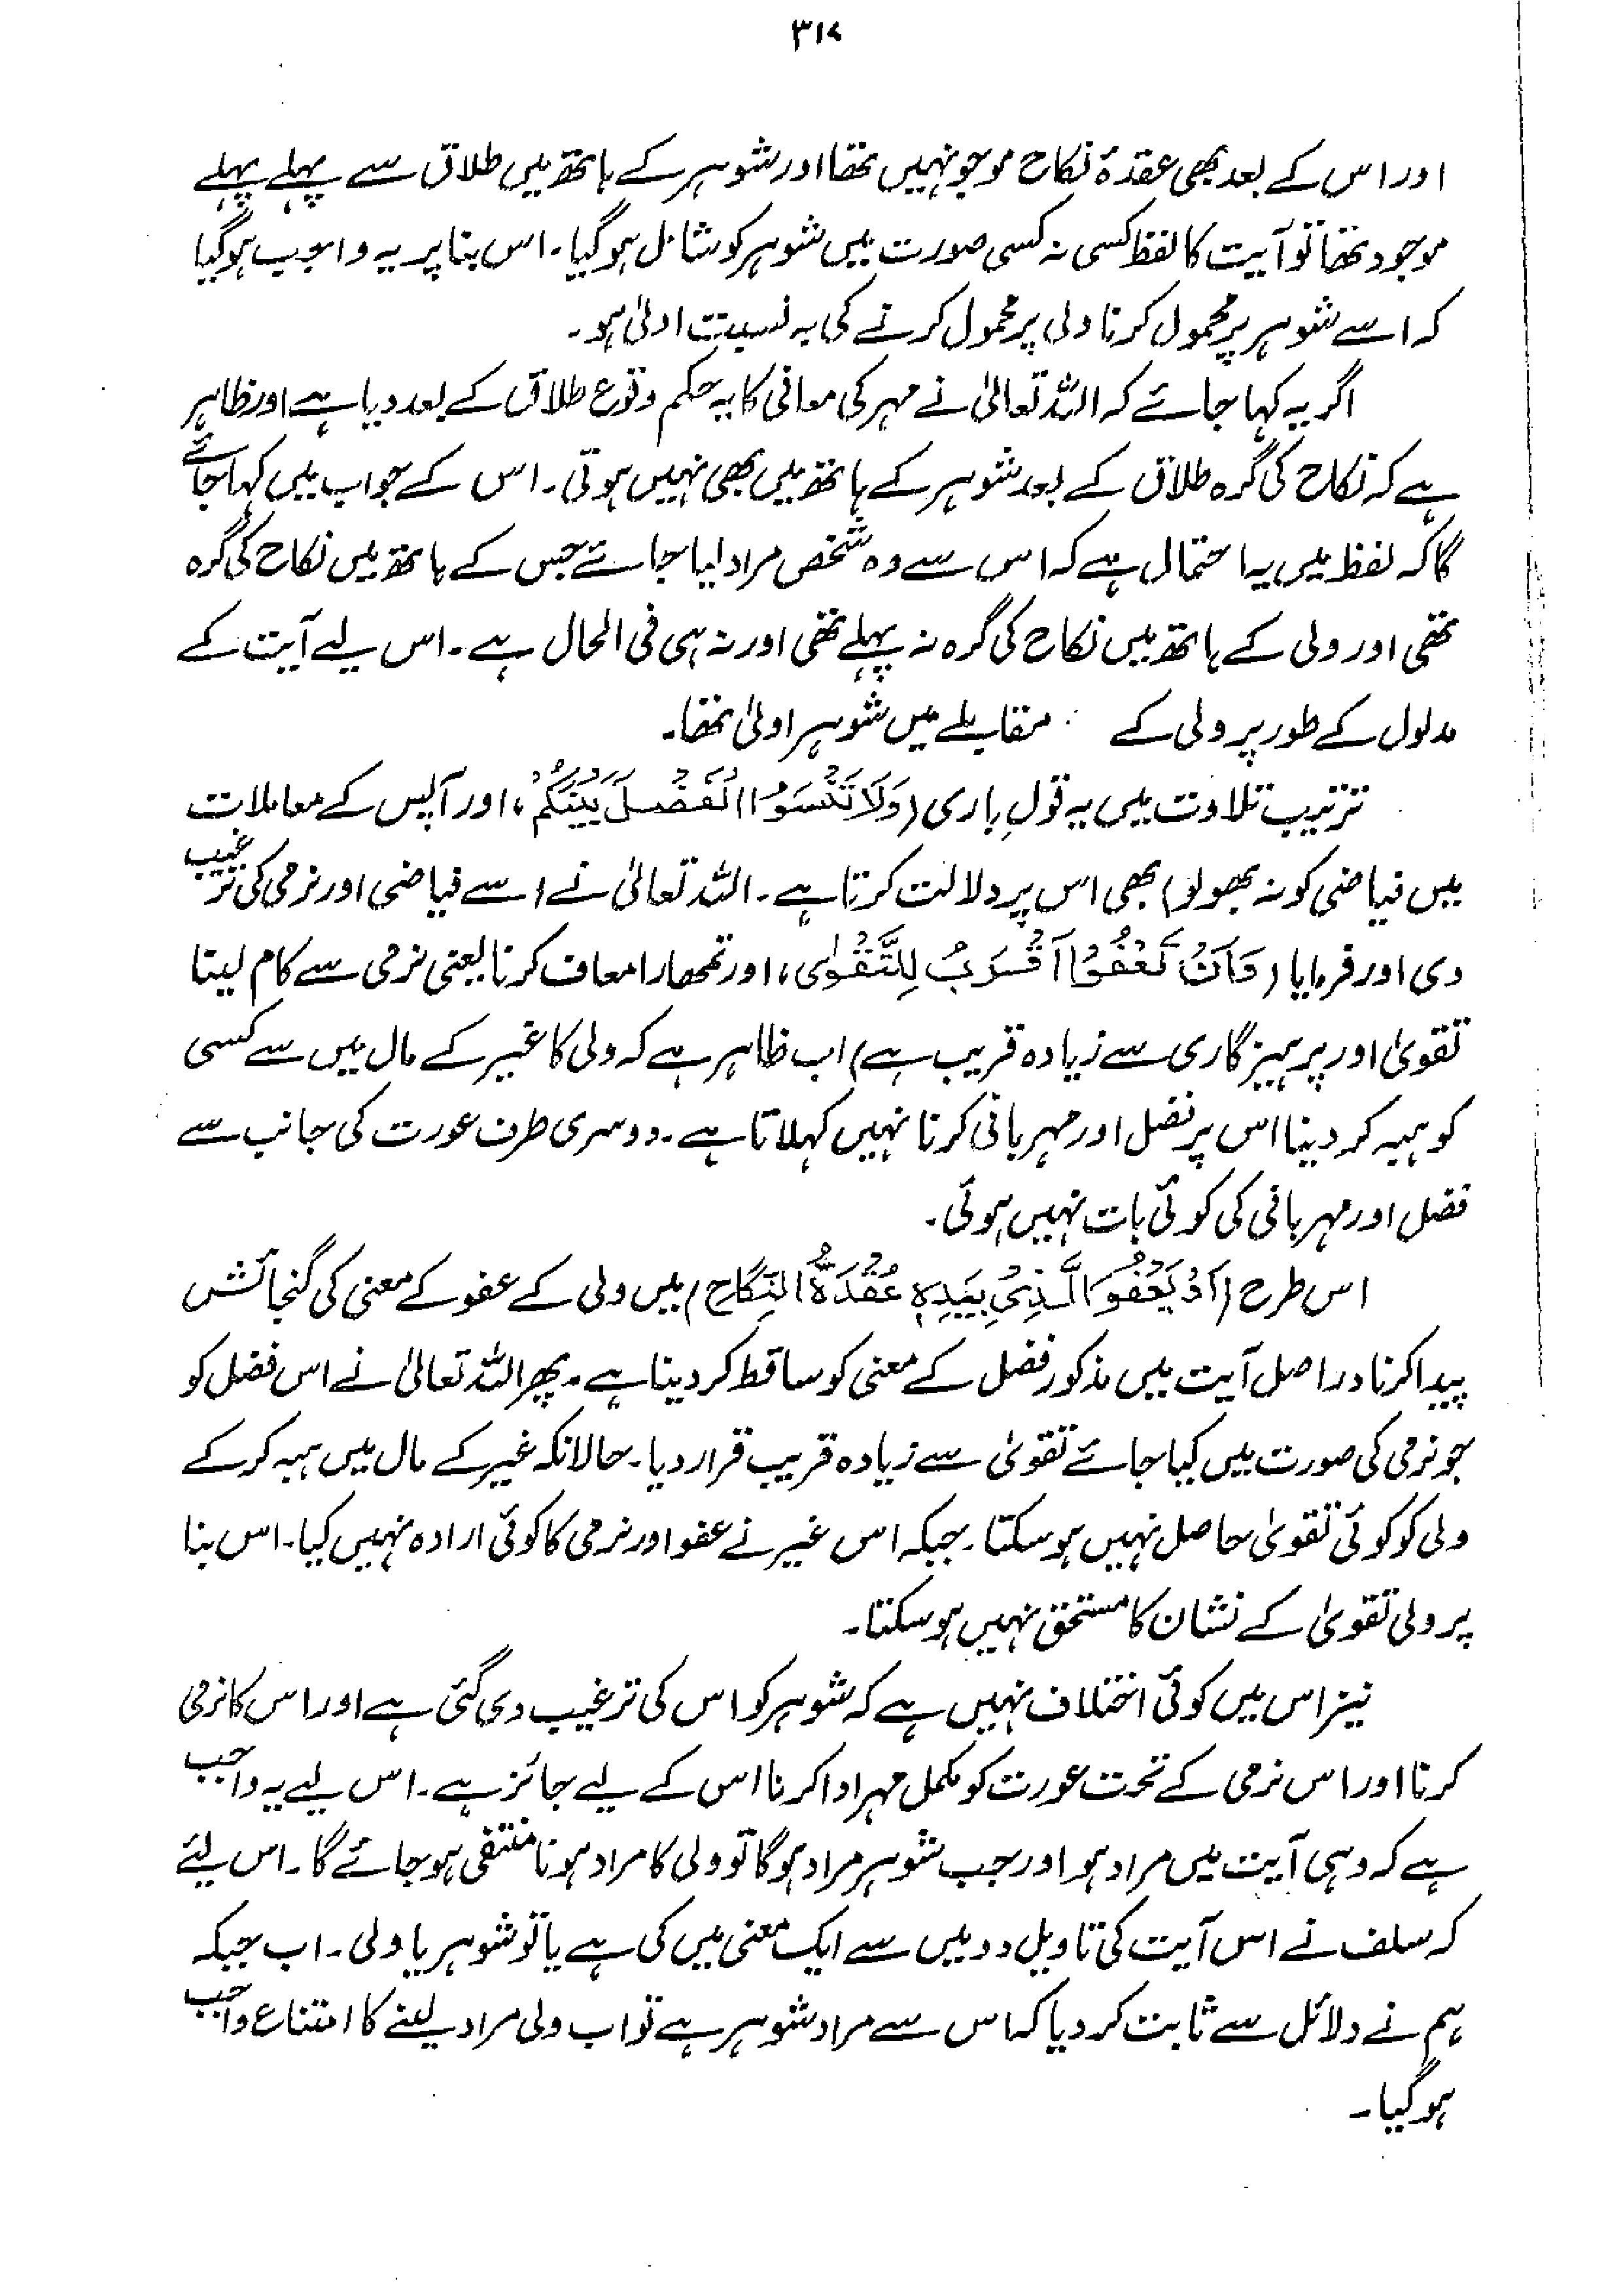 ۳۱۷
اور اس کے بعد بھی عقدۂ نکاح موجو نہیں تھا اور شوہر کے ہاتھ میں طلاق سے پہلے پہلے
موجود تھا تو آیت کا لفظ کسی نہ کسی صورت میں شوہر کو شامل ہو گیا۔ اس بنا پر یہ واجب ہو گیا
کہ اسے شوہر پر محمول کرنا ولی پر محمول کرنے کی بہ نسبت اولیٰ ہو۔
اگر یہ کہا جائے کہ اللہ تعالیٰ نے مہر کی معافی کا یہ حکم وقوع طلاق کے بعد دیا ہے اور ظاہر
ہے کہ نکاح کی گرہ طلاق کے بعد شوہر کے ہاتھ میں بھی نہیں ہوتی۔ اس کے جواب میں کہا جائے
گا کہ لفظ میں یہ احتمال ہے کہ اس سے وہ شخص مراد لیا جائے جس کے ہاتھ میں نکاح کی گرہ
تھی اور ولی کے ہاتھ میں نکاح کی گرہ نہ پہلے تھی اور نہ ہی فی الحال ہے۔ اس لیے آیت کے
مدلول کے طور پر ولی کے مقابلے میں شوہر اولیٰ تھا۔
ترتیب تلاوت میں یہ قولِ باری (وَلَا تَنْسَوُا الْفَضْلَ بَيْنَكُمْ، اور آپس کے معاملات
میں فیاضی کو نہ بھولو) بھی اس پر دلالت کرتا ہے۔ اللہ تعالیٰ نے اسے فیاضی اور نرمی کی ترغیب
دی اور فرمایا (وَاَنْ تَعْفُوْا اَقْرَبُ لِلتَّقْوٰى، اور تمھارا معاف کرنا یعنی نرمی سے کام لینا
تقویٰ اور پرہیزگاری سے زیادہ قریب ہے) اب ظاہر ہے کہ ولی کا غیر کے مال میں سے کسی
کو ہبہ کر دینا اس پر فضل اور مہربانی کرنا نہیں کہلاتا ہے۔ دوسری طرف عورت کی جانب سے
فضل اور مہربانی کی کوئی بات نہیں ہوئی۔
اس طرح (اَوْ يَعْفُوَا الَّذِيْ بِيَدِهٖ عُقْدَةُ النِّكَاحِ) میں ولی کے عفو کے معنی کی گنجائش
پیدا کرنا دراصل آیت میں مذکور فضل کے معنی کو ساقط کر دینا ہے۔ پھر اللہ تعالیٰ نے اس فضل کو
جو نرمی کی صورت میں کیا جائے تقویٰ سے زیادہ قریب قرار دیا۔ حالانکہ غیر کے مال میں ہبہ کر کے
ولی کو کوئی تقویٰ حاصل نہیں ہو سکتا۔ جبکہ اس غیر نے عفو اور نرمی کا کوئی ارادہ نہیں کیا۔ اس بنا
پر ولی تقویٰ کے نشان کا مستحق نہیں ہو سکتا۔
نیز اس میں کوئی اختلاف نہیں ہے کہ شوہر کو اس کی ترغیب دی گئی ہے اور اس کا نرمی
کرنا اور اس نرمی کے تحت عورت کو مکمل مہر ادا کرنا اس کے لیے جائز ہے۔ اس لیے یہ واجب
ہے کہ وہی آیت میں مراد ہو اور جب شوہر مراد ہو گا تو ولی کا مراد ہونا منتفی ہو جائے گا۔ اس لیئے
کہ سلف نے اس آیت کی تاویل دو میں سے ایک معنی میں کی ہے یا تو شوہر یا ولی۔ اب جبکہ
ہم نے دلائل سے ثابت کر دیا کہ اس سے مراد شوہر ہے تو اب ولی مراد لینے کا امتناع واجب
ہو گیا۔